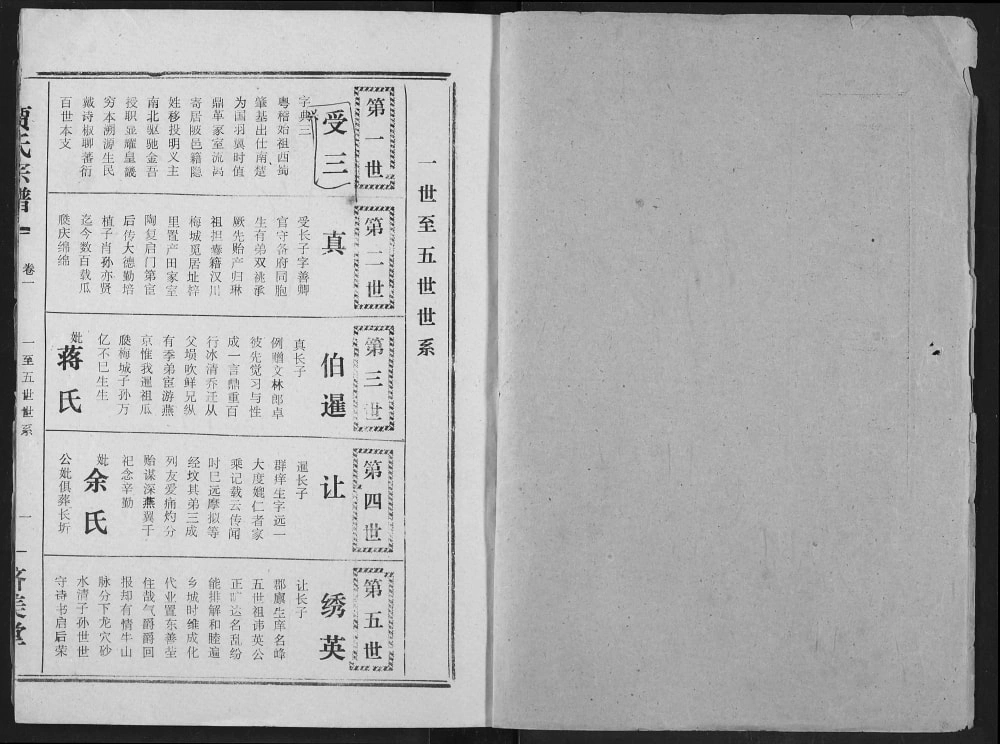 一世至五世世系
第一世
受三
字典三
粤稽始祖西蜀
肇基出仕南楚
为国羽翼时值
鼎革家室流离
寄居陂邑籍隐
姓移投明义主
南北驱驰金吾
授职显耀皇畿
穷本溯源生民
戴诗椒聊蕃衍
百世本支
第二世
真
受长子字善卿
官守备府同胞
生有弟双祧承
厥先贻产归琳
祖担囊籍汉川
梅城觅居址锌
里置产田家室
陶复启门第宦
后传大德勤培
植子肖孙亦贤
迄今数百载瓜
瓞庆绵绵
第三世
伯暹
真长子
例赠文林郎卓
彼先觉习与性
成一言鼎重百
行冰清乔迁从
父埙吹鲜兄纵
有季弟宦游燕
京惟我暹祖瓜
瓞梅城子孙万
亿不巳生生
妣
蒋氏
第四世
让
暹长子
群痒生字远一
大度媲仁者家
乘记载云传闻
时巳远摩拟等
经坟其弟三成
列友爱痛灼分
贻谋深燕翼千
祀念辛勤
妣
余氏
公妣俱葬长圻
第五世
绣英
让长子
郡廪生庠名峰
五世祖讳英公
正 达名乱纷
能排解和睦遍
乡城时雍成化
代业置东善堂
住哉气爵爵回
报却有情牛山
脉分下龙穴砂
水清子孙世世
守诗书启后荣
贾氏宗谱
卷一
一至五世世系
一